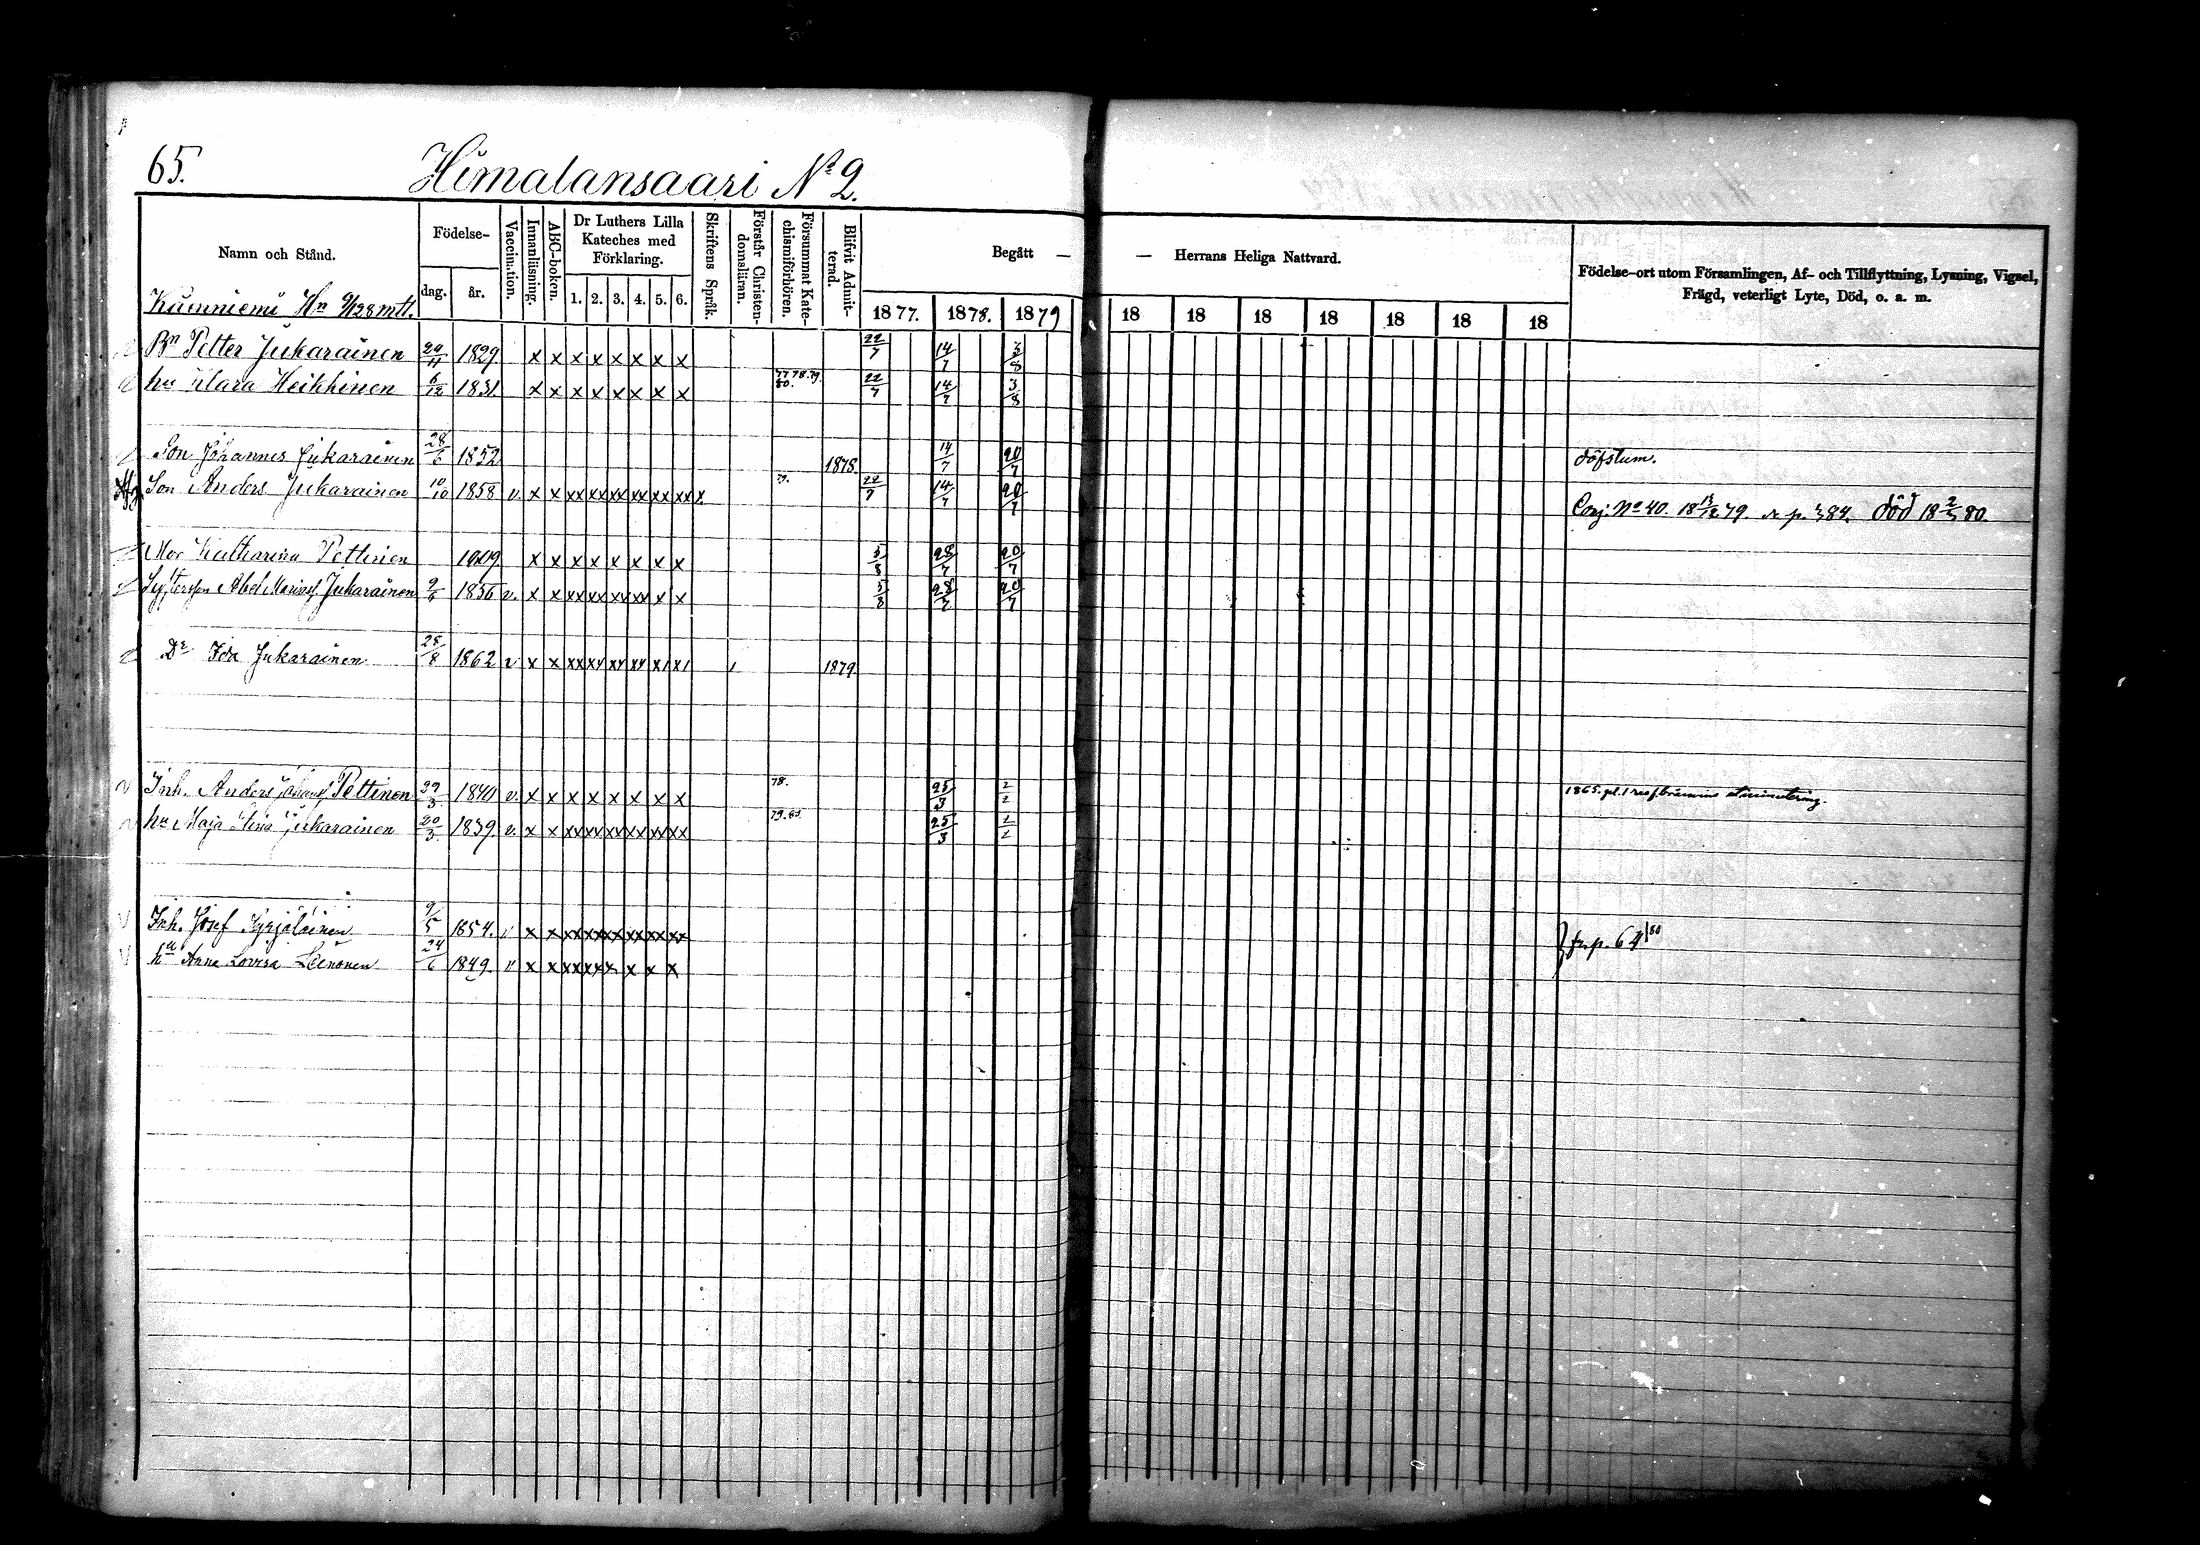 65. Himalansaari No 2.
Namn och Stånd. Födelse- dag. år. Vaccination. Innanläsning. ABC-boken. Dr Luthers Lilla Kateches med Förklaring. 1. 2. 3. 4. 5. 6. Skriftens Språk. Förstår Christendomsläran. Försummat Katechismiförhören. Blifvit Admitterad. Begått — — Herrans Heliga Nattvard. Födelse-ort utom Församlingen, Af- och Tillflyttning, Lysning, Vigsel, Frägd, veterligt Lyte, Död, o. a. m.
1877. 1878. 1879 18 18 18 18 18 18 18
Bn Petter Jukarainen 1829 x x x x x x x x 22/7 14/7 3/8
hu Clara Heikkinen 6/12 1831. x x x x x x x x 77 78. 79. 80. 22/7 14/7 3/8
Son Johannes Jukarainen 28/6 1852 1878. 14/7 20/7 döfstum.
Son Anders Jukarainen 10/10 1858 v. x x xx xx xx xx xx xx x 79. 22/7 14/7 20/7 Conj: No 40. 79. död 18 80.
Mor Katharina Pettinen x x x x x x x x 5/8 28/7 20/7
Abel Jukarainen 1836 v. x x xx xx xx xx x x 5/8 28/7 20/7
Dr Ida Jukarainen 28/8 1862 v x x 1879.
Inh. Anders Pettinen 1840 v. x x x x x x x x 78. 25/3 2/2 1865.
hu Maja Stina Jukarainen 20/3 1839. v. x x xx xx xx xx xx xx 25/3 2/2
Inh. Josef Syrjäläinen 9/5 1854. v x x xx xx xx xx xx xx
hu Anna Lovisa Leinonen 24/6 1849. v x x xx xx x x x x
fr. p. 64/80